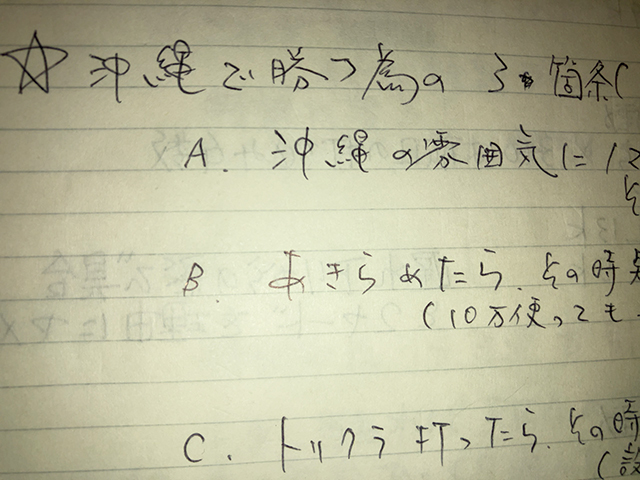 ☆ 沖縄で勝つ為の 3箇条(
A. 沖縄の雰囲気に
B. あきらめたら、その時
(10万使っても
C. トップクラ打ったら、その時